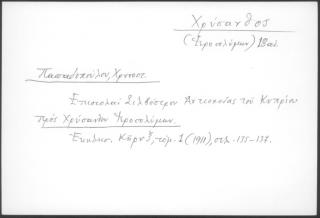 Χρύσανθος
(Ἱεροσολύμων) 18 αἰ.
Παπαδοπούλου, Χρυσοστ.
Ἐπιστολαὶ Σιλβέστρου Ἀντιοχείας τοῦ Κυπρίου
πρὸς Χρύσανθον Ἱεροσολύμων.
Ἐκκλησ. Κῆρυξ, τόμ. 1 (1911), σελ. 135-137.